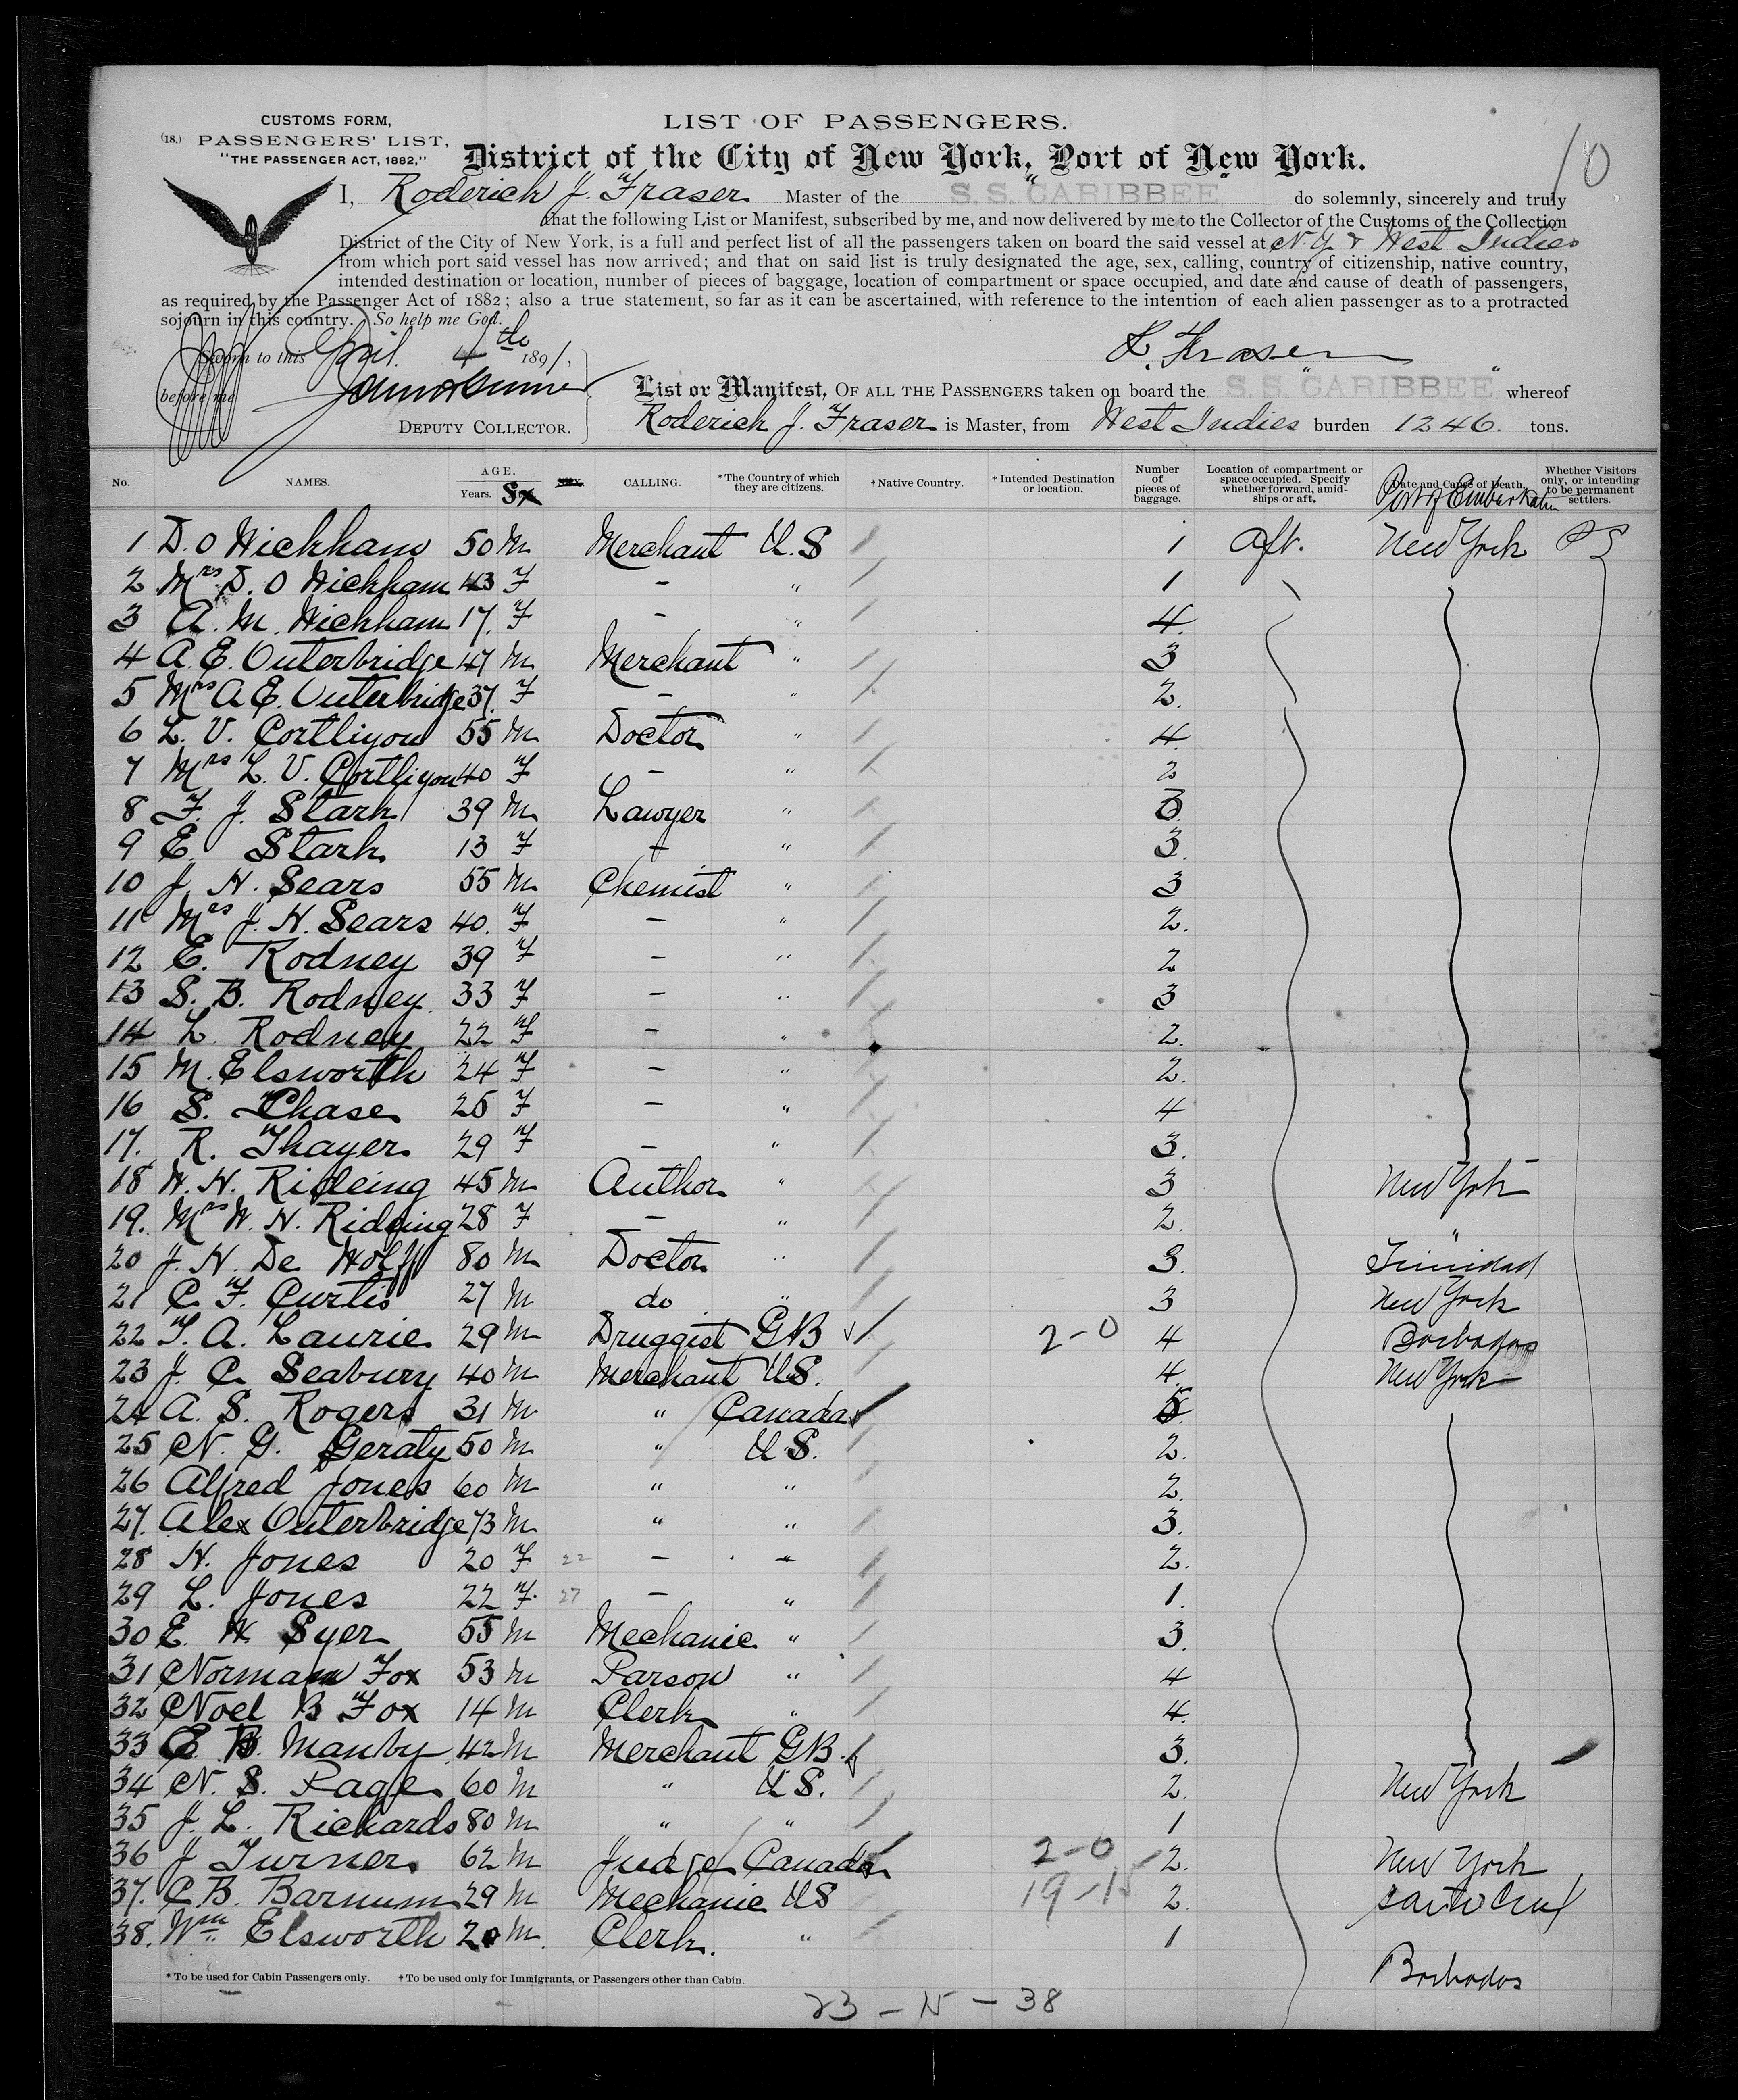 CUSTOMS FORM,
(18.) PASSENGERS' LIST,
"THE PASSENGER ACT, 1882,"
LIST OF PASSENGERS.
District of the City of New York, Port of New York.
10
I, Roderich J. Fraser Master of the S. S. "CARIBBEE" do solemnly, sincerely and truly
that the following List or Manifest, subscribed by me, and now delivered by me to the Collector of the Customs of the Collection
District of the City of New York, is a full and perfect list of all the passengers taken on board the said vessel at N.Y. & West Indies
from which port said vessel has now arrived; and that on said list is truly designated the age, sex, calling, country of citizenship, native country,
intended destination or location, number of pieces of baggage, location of compartment or space occupied, and date and cause of death of passengers,
as required by the Passenger Act of 1882; also a true statement, so far as it can be ascertained, with reference to the intention of each alien passenger as to a protracted
sojourn in this country. So help me God.
Sworn to this April 4th 1891,
before me
R. Fraser
DEPUTY COLLECTOR.
List or Manifest, OF ALL THE PASSENGERS taken on board the S. S. "CARIBBEE" whereof
Roderich J. Fraser is Master, from West Indies burden 1246. tons.
No. NAMES. AGE. Years. Sx SEX. CALLING. *The Country of which they are citizens. †Native Country. †Intended Destination or location. Number of pieces of baggage. Location of compartment or space occupied. Specify whether forward, amidships or aft. Date and Cause of Death. Port of Embarkatn Whether Visitors only, or intending to be permanent settlers.
1 D. O Wickham 50 M Merchant U.S 1 aft. New York
2 Mrs D. O Wickham 43 F - " 1
3 A. M. Wickham 17. F - " 4.
4 A. E. Outerbridge 47 M Merchant " 3
5 Mrs A E. Outerbridge 37. F - " 2.
6 L. V. Cortliyou 55 M Doctor " 4.
7 Mrs L. V. Cortliyou 40 F - " 2
8 F. J. Stark 39 M Lawyer "
9 E. Stark 13 F - " 3.
10 J. H. Sears 55 M Chemist " 3
11 Mrs J. H. Sears 40. F - " 2.
12 E. Rodney 39 F - " 2
13 S. B. Rodney. 33 F - " 3
14 L. Rodney 22 F - " 2.
15 M. Elsworth 24 F - " 2.
16 S. Chase 25 F - " 4
17. R. Thayer 29 F - " 3.
18 W. H. Rideing 45 M Author " 3 New York
19. Mrs W. H. Rideing 28 F - " 2. "
20 J. H. De Wolff 80 M Doctor " 3. Trinidad
21 C. F. Curtis 27 M do " 3 New York
22 T. A. Laurie 29 M Druggist GB 2-0 4 Barbados
23 J. C. Seabury 40 M Merchant U.S. 4. New York
24 A. S. Rogers 31 M " Canada 5.
25 N. G. Geraty 50 M " U S. 2.
26 Alfred Jones 60 M " " 2.
27. Alex Outerbridge 73 M " " 3.
28 H. Jones 20 F 22 - " 2.
29 L. Jones 22 F. 27 - " 1.
30 E. W Syer 55 M Mechanic " 3.
31 Norman Fox 53 M Parson " 4
32 Noel B Fox 14 M Clerk " 4.
33 E. B. Manby 42 M Merchant GB. 3.
34 N. S. Page 60 M " U S. 2. New York
35 J. L. Richards 80 M " " 1
36 J Turner 62 M Judge Canada 2-0 2. New York
37. C. B. Barnum 29 M Mechanic US 19-15 2. Santa Cruz
38. Wm Elsworth 20 M. Clerk. " 1
Barbados
* To be used for Cabin Passengers only. † To be used only for Immigrants, or Passengers other than Cabin.
23 - 15 - 38